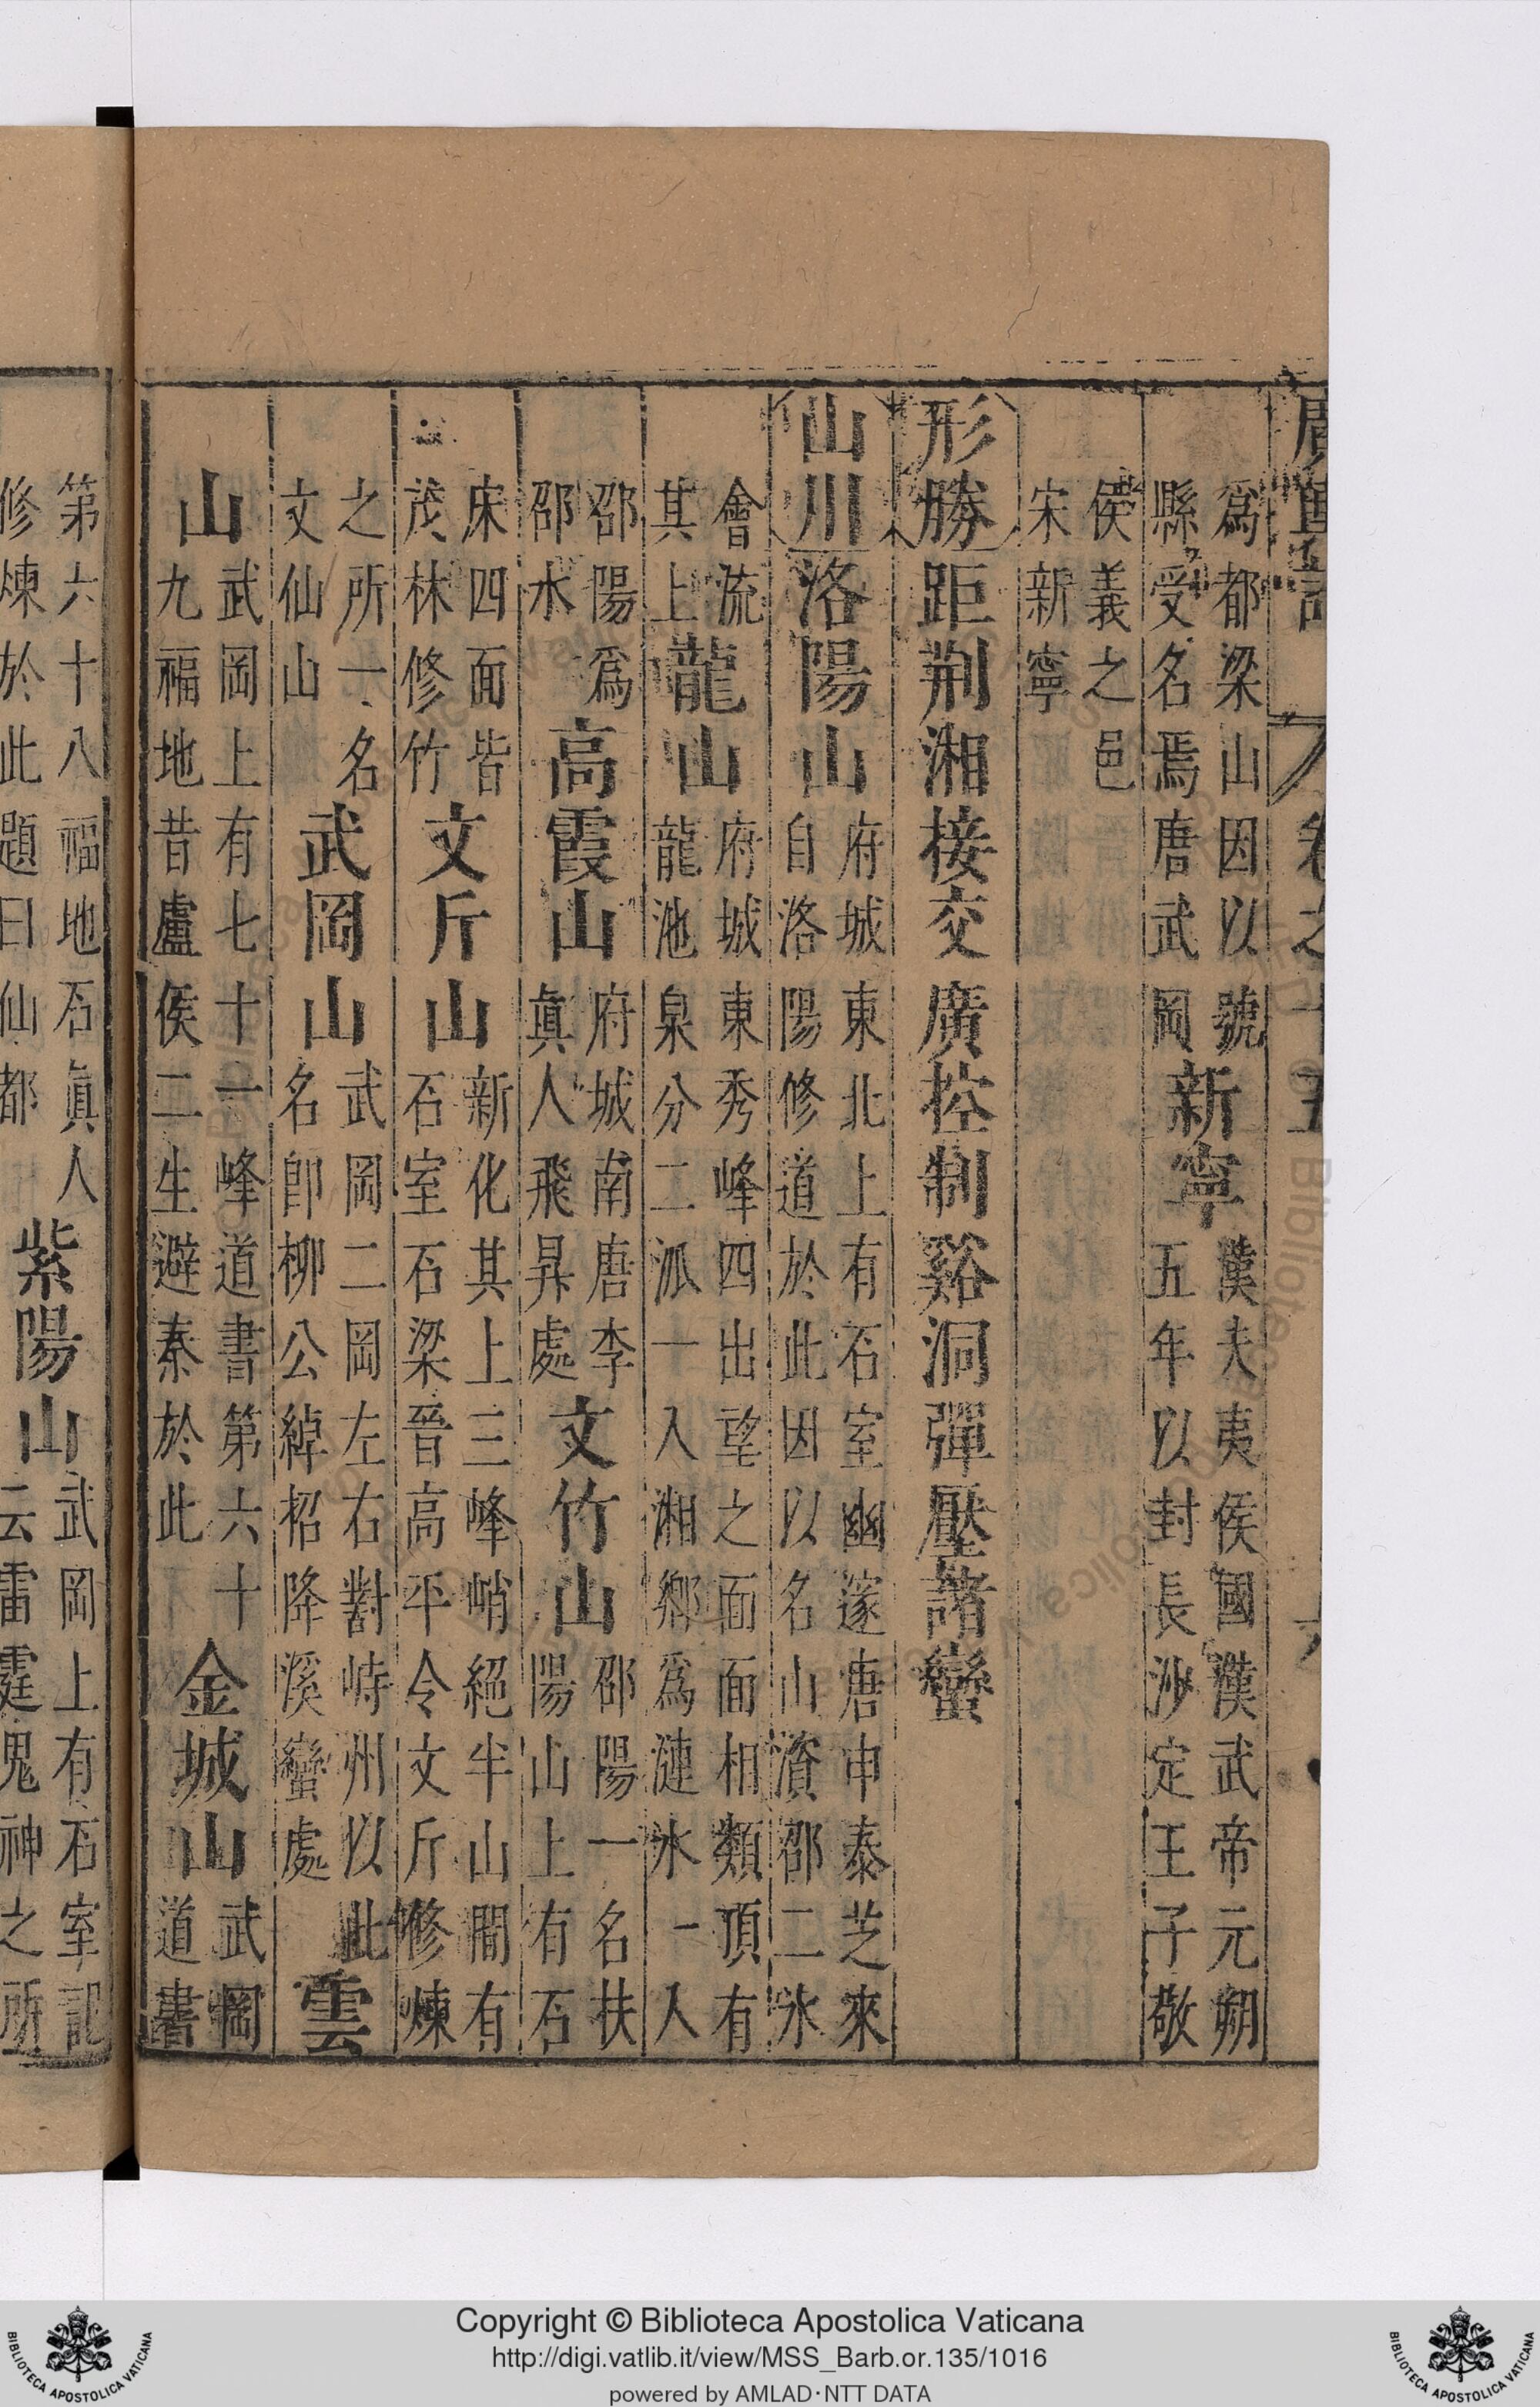 卷之十五
爲都梁山因以號
縣受名焉唐武岡
新寧
漢夫夷侯國漢武帝元朔
五年以封長沙定王子敬
侯義之邑
宋新寧
形勝距荆湘接交廣控制谿洞彈壓諸蠻
山川洛陽山
府城東北上有石室幽邃唐申泰芝來
自洛陽修道於此因以名山濱邵二水
會流
其上
龍山
府城東秀峰四出望之面面相類頂有
龍池泉分二派一入湘鄉爲漣水一入
邵陽爲
邵水
高霞山
府城南唐李
眞人飛昇處
文竹山
邵陽一名扶
陽山上有石
床四面皆
茂林修竹
文斤山
新化其上三峰峭絕半山間有
石室石梁晉高平令文斤修煉
之所一名
文仙山
武岡山
武岡二岡左右對峙州以此
名卽柳公綽招降溪蠻處
雲
山
武岡上有七十一峰道書第六十
九福地昔盧侯二生避秦於此
金城山
武岡
道書
第六十八福地石眞人
修煉於此題曰仙都
紫陽山
武岡上有石室記
云雷霆鬼神之所
Copyright © Biblioteca Apostolica Vaticana
http://digi.vatlib.it/view/MSS_Barb.or.135/1016
powered by AMLAD·NTT DATA
BIBLIOTECA APOSTOLICA VATICANA
BIBLIOTECA APOSTOLICA VATICANA